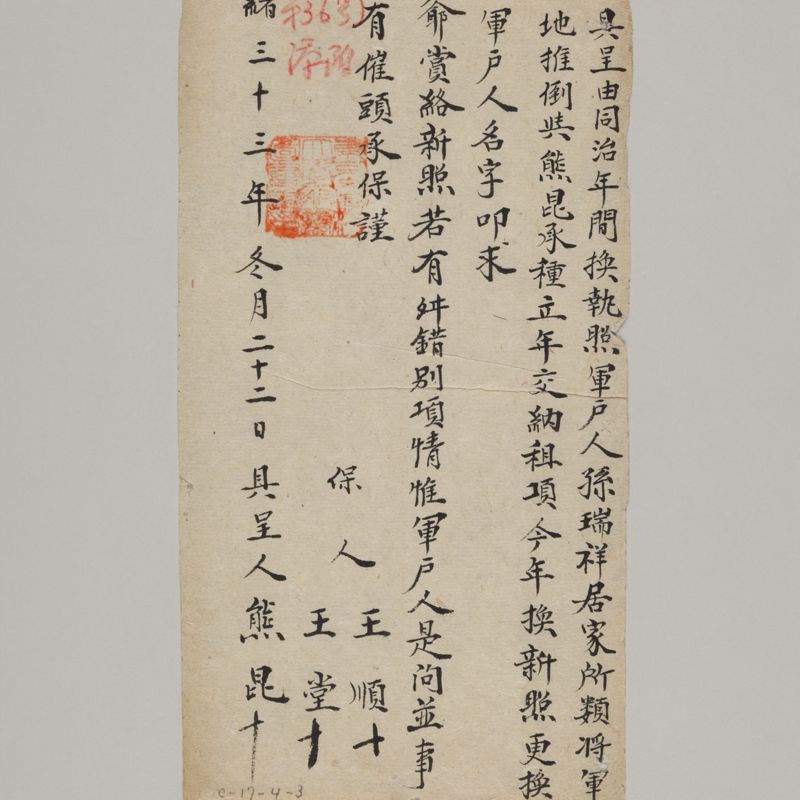 具呈由同治年間換執照軍戶人孫瑞祥居家所類将軍
地推倒與熊昆承種立年交納租項今年換新照更換
軍戶人名字叩求
爺賞給新照若有舛錯別項情惟軍戶人是问並事
有催頭承保謹
保人 王順十
王堂十
緒三十三年冬月二十二日具呈人熊昆十
c-17-4-3